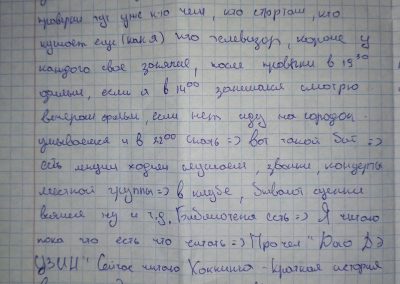 проверки тут уже кто чем, кто спортом, кто
кушает еще (как я) кто телевизор, короче у
каждого свое занятие, после проверки в 19 30
фильм, если я в 14 00 занимался смотрю
вечером фильм, если нет иду на городок.
умываемся и в 22 00 спать => вот такой быт =>
есть лекции ходим слушаем, звоним, концерты
местной группы => в клубе, бывают сценки
всякие ну и т.д. Библиотека есть => Я читаю
пока что есть что читать => Прочел "Дао Дэ
Цзин" Сейчас читаю Хоккинга - Краткая история